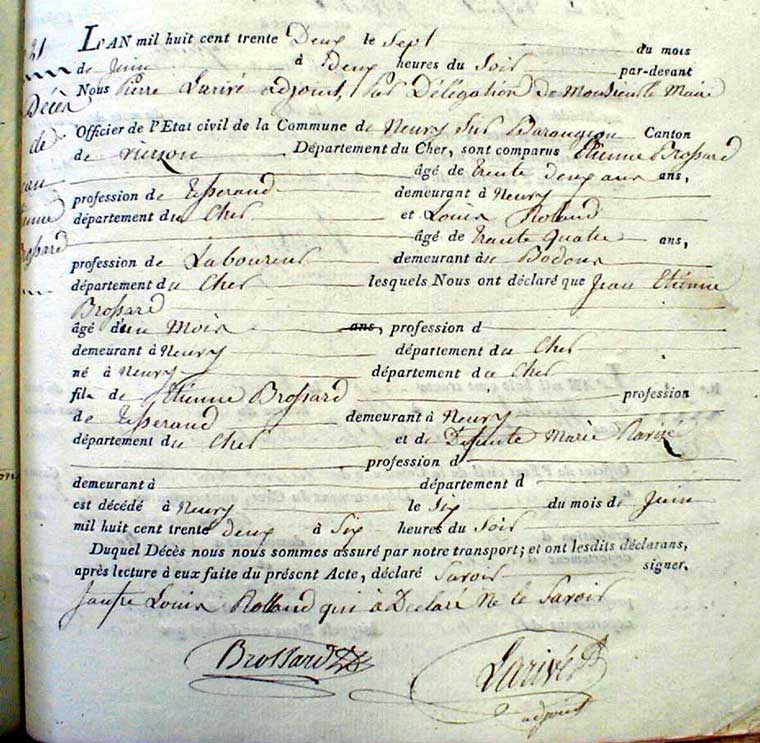 21
L'AN mil huit cent trente Deux le Sept du mois
de Juin à Deux heures du Soir par-devant
Nous Pierre Larivé adjoint, Par Délégation de Monsieur le Maire
Décès
Officier de l'Etat civil de la Commune de Neuvy Sur Barangeon Canton
de
de vierzon Département du Cher, sont comparus Etienne Brossard
âgé de trente deux ans ans,
profession de Tisserand demeurant à Neuvy
département du Cher et Louis Roland
Brossard
âgé de trente quatre ans,
profession de Laboureur demeurant à
département du Cher lesquels Nous ont déclaré que Jean Etienne
Brossard
âgé d'un Mois ans, profession d
demeurant à Neuvy département du Cher
né à Neuvy département du Cher
fils de Etienne Brossard profession
de Tisserand demeurant à Neuvy
département du Cher et de Defunte Marie
profession d
demeurant à département d
est décédé à Neuvy le Six du mois de Juin
mil huit cent trente deux à Six heures du Soir
Duquel Décès nous nous sommes assuré par notre transport; et ont lesdits déclarans,
après lecture à eux faite du présent Acte, déclaré Savoir signer.
Louis Rolland qui à Déclaré Ne le Savoir
Brossard
Larivé
adjoint